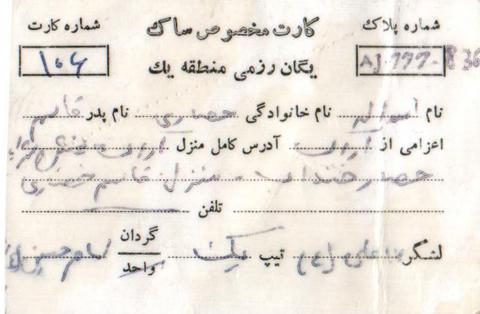 شماره کارت کارت مخصوص ساک شماره پلاک
۱۰۶ یگان رزمی منطقه یك AJ-۲۲۲-
نام اسداله نام خانوادگی حصاری نام پدر قاسم
اعزامی از اراک آدرس کامل منزل اراک
منزل قاسم حصاری
تلفن
لشگر علی تیپ یک گردان واحد امام حسین